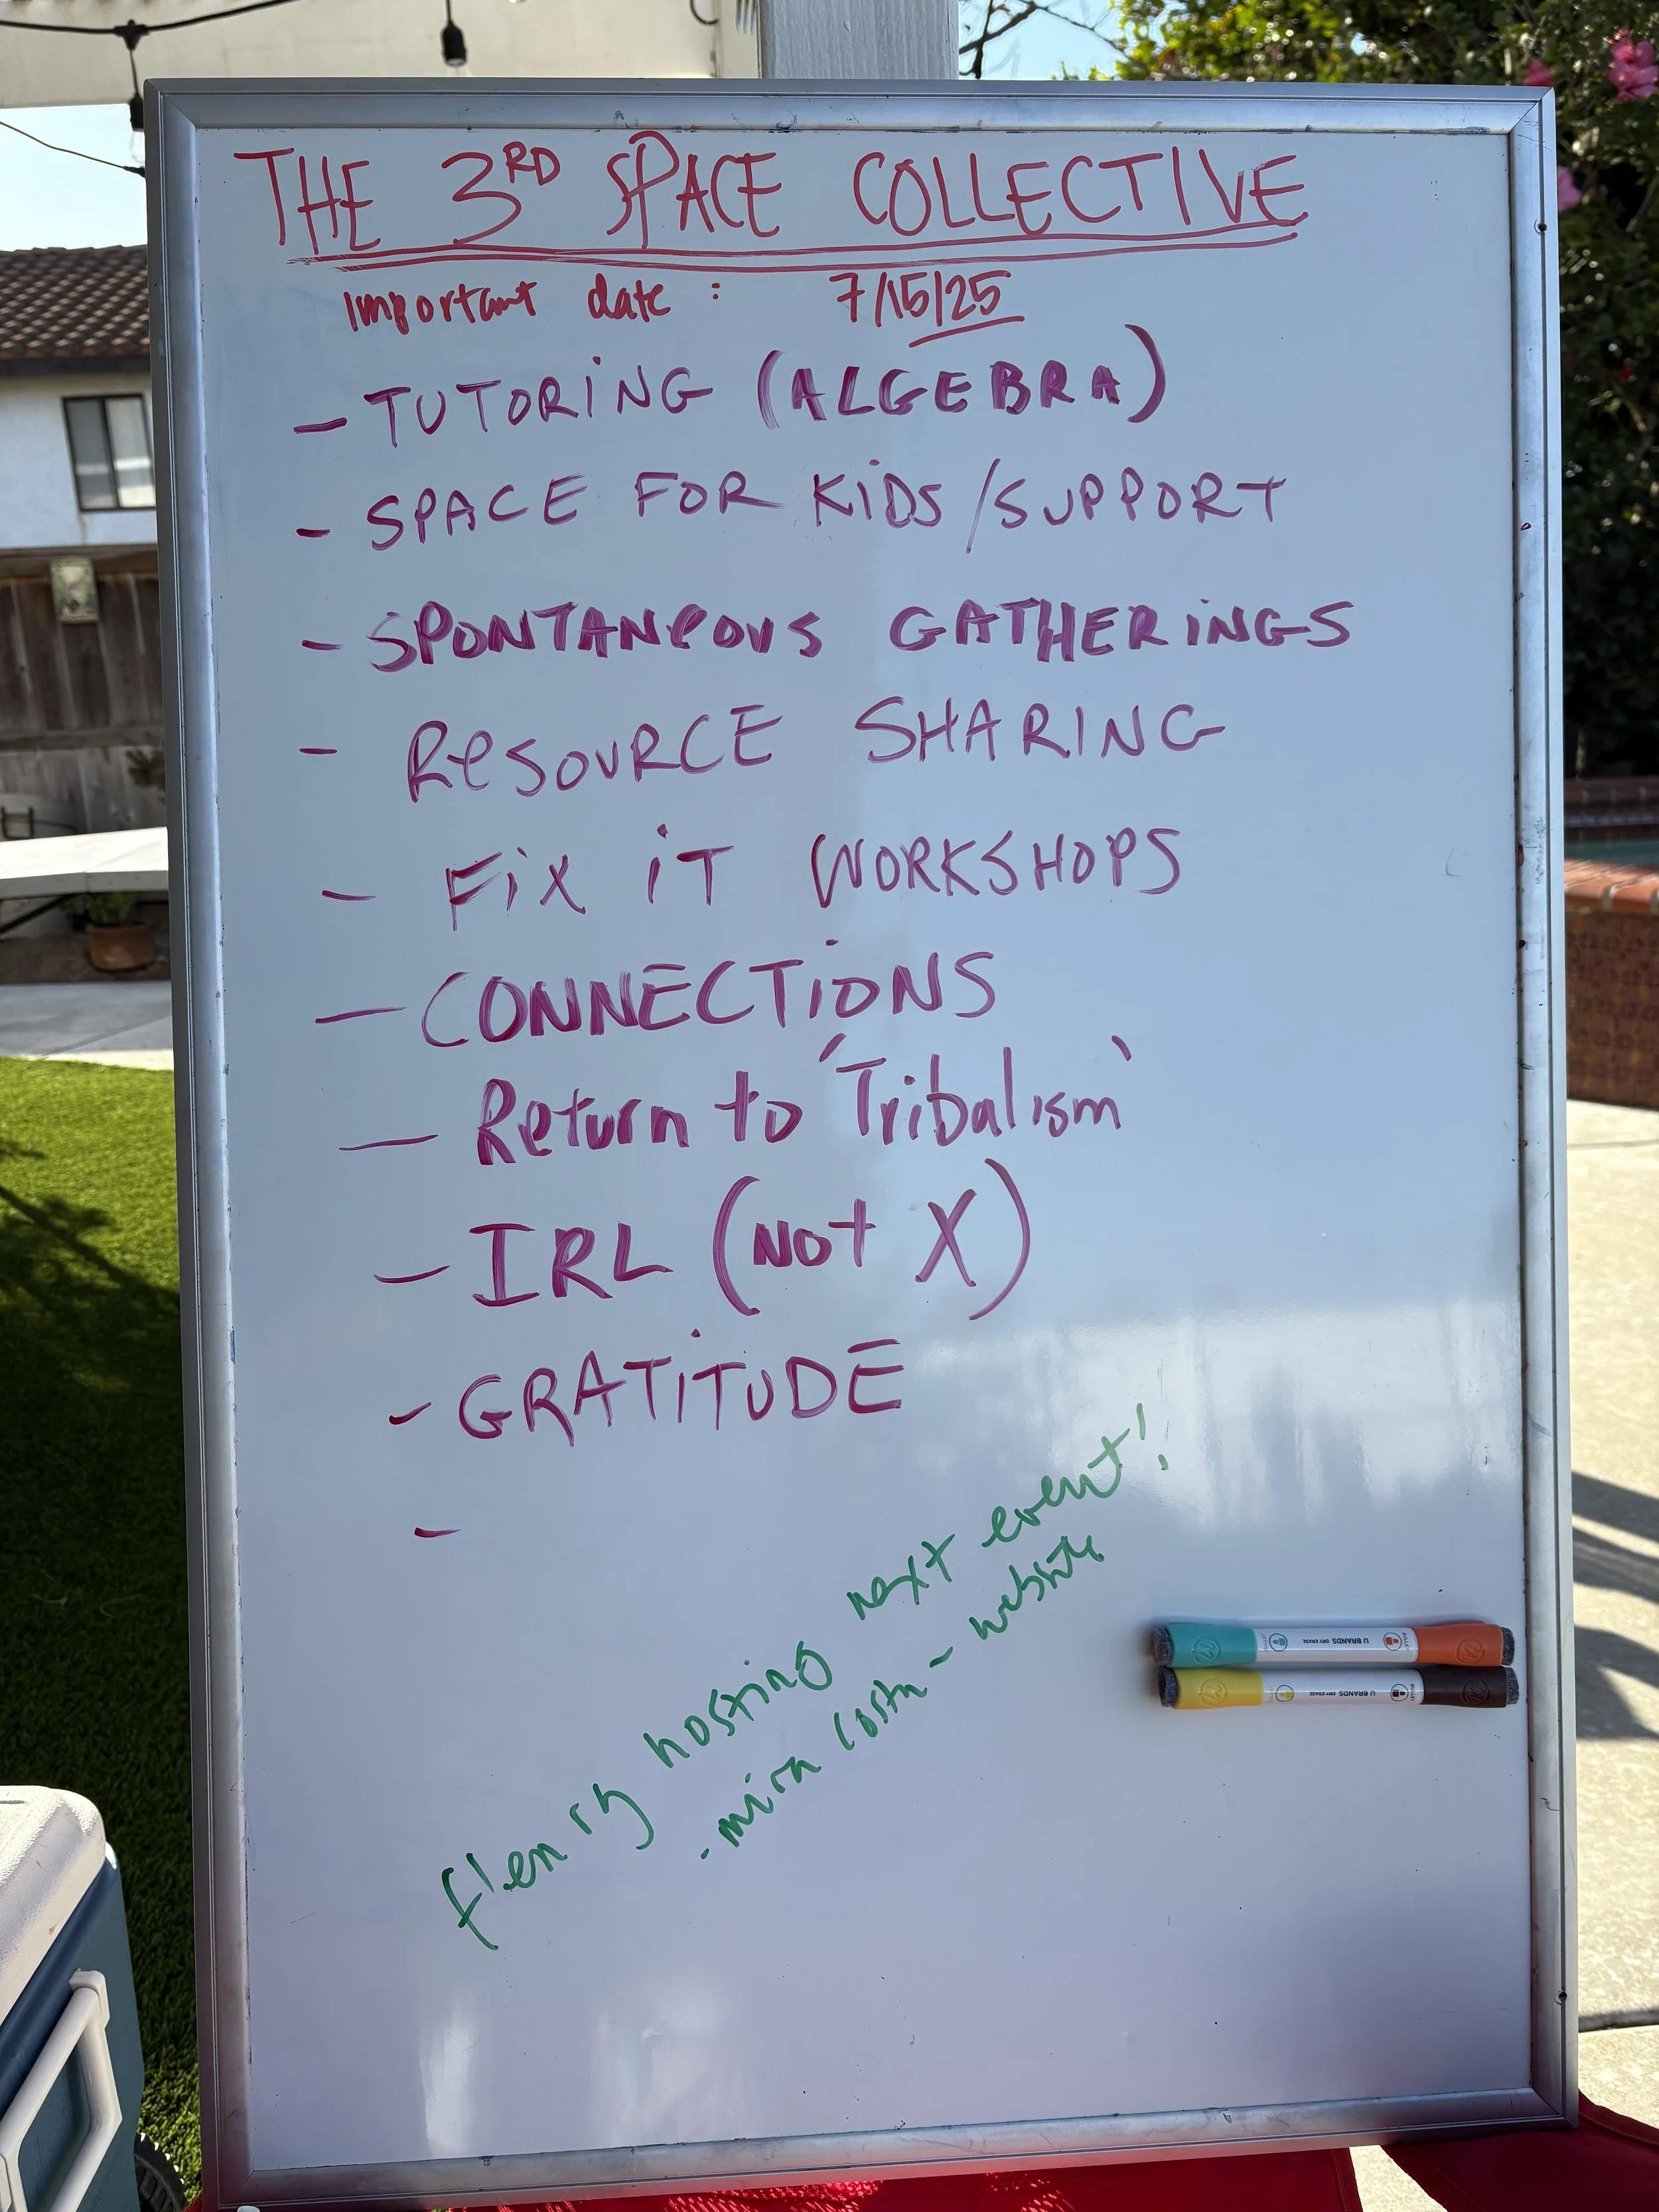 THE 3RD SPACE COLLECTIVE
Important date : 7/15/25
- TUTORiNG (ALGEBRA)
- SPACE FOR KiDS/SUPPORT
- SPONTANeOUS GATHERiNGS
- ReSOURCE SHARING
- FiX iT WORKSHOPS
- CONNECTiONS
- Return to 'Tribalism'
- IRL (NOt X)
- GRATiTUDE
-
hosting next event!
- mira costa - website
U BRANDS DRY ERASE
U BRANDS DRY ERASE